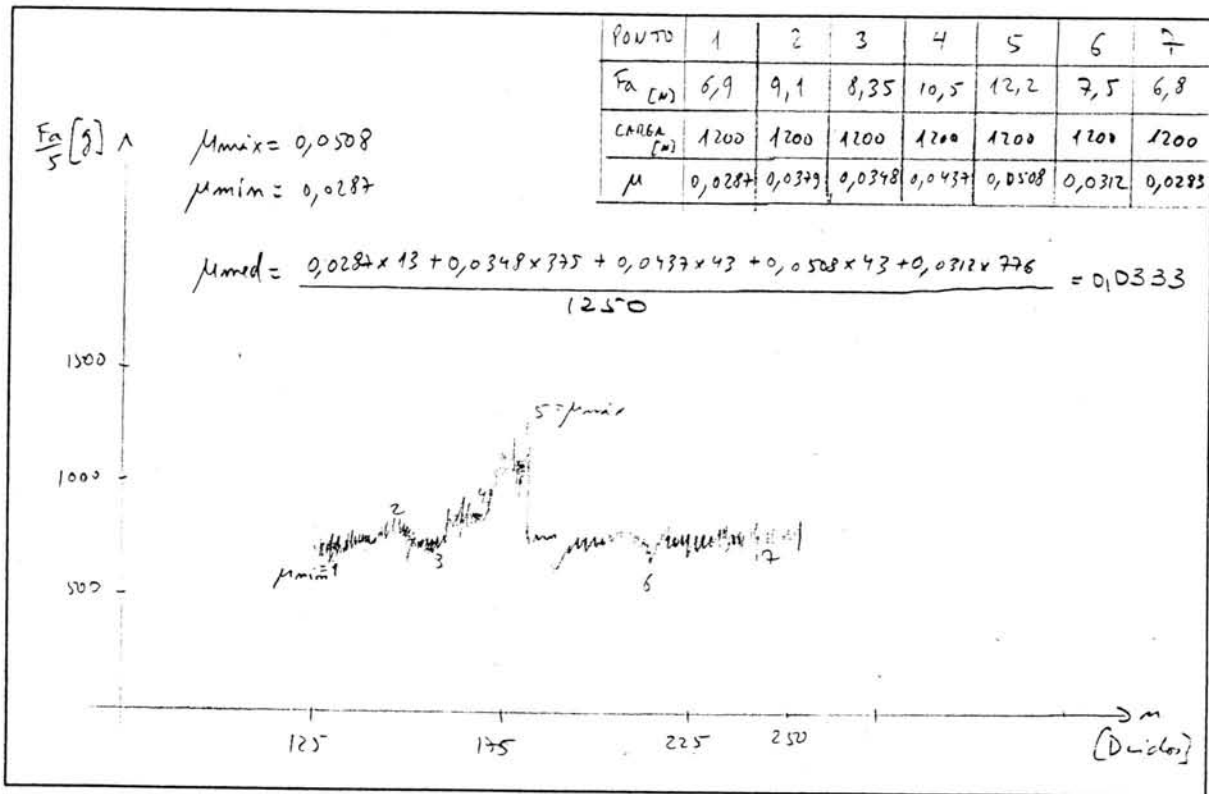 PONTO 1 2 3 4 5 6 7
Fa [N] 6,9 9,1 8,35 10,5 12,2 7,5 6,8
CARGA [N] 1200 1200 1200 1200 1200 1200 1200
μ 0,0287 0,0379 0,0348 0,0437 0,0508 0,0312 0,0283
Fa/5 [g]
μmáx = 0,0508
μmín = 0,0287
μmed = 0,0287 x 13 + 0,0348 x 375 + 0,0437 x 43 + 0,0508 x 43 + 0,0312 x 776 = 0,0333
1250
1500
5 = μmáx
1000
2
4
3
μmín = 1
6
7
500
125 175 225 250
n